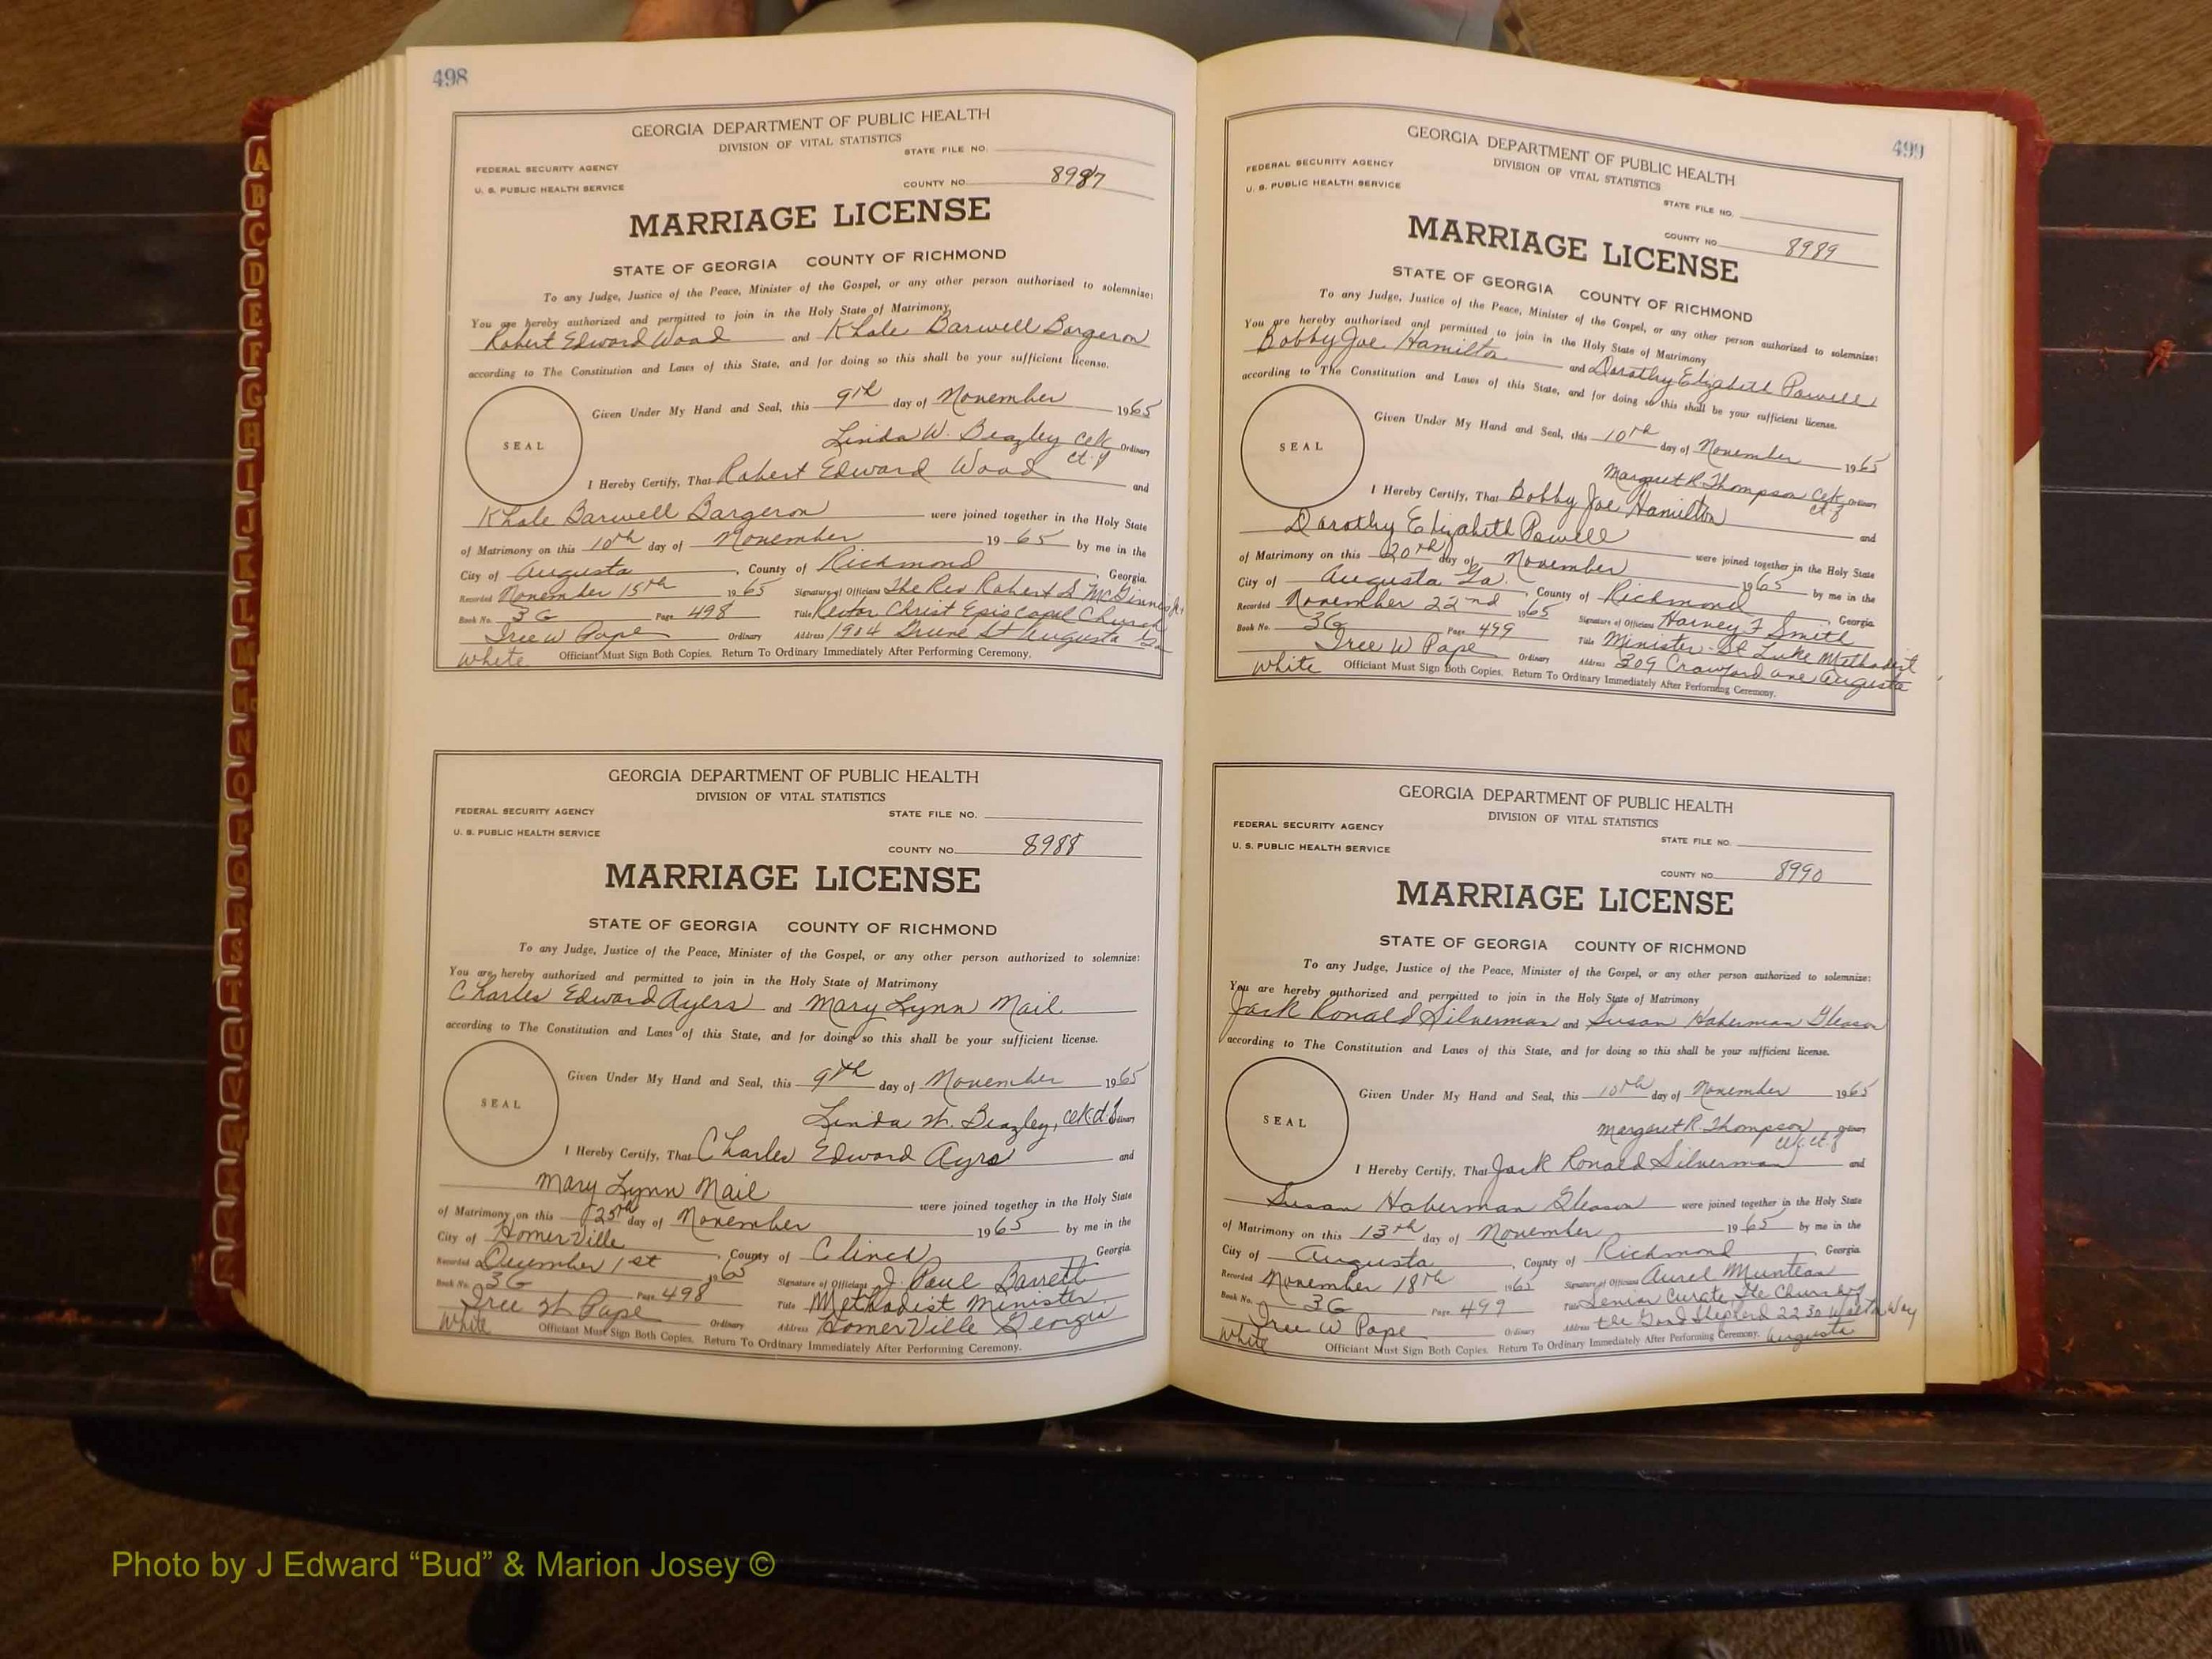 498
GEORGIA DEPARTMENT OF PUBLIC HEALTH
DIVISION OF VITAL STATISTICS
STATE FILE NO.
FEDERAL SECURITY AGENCY
U. S. PUBLIC HEALTH SERVICE
COUNTY NO. 8987
MARRIAGE LICENSE
STATE OF GEORGIA COUNTY OF RICHMOND
To any Judge, Justice of the Peace, Minister of the Gospel, or any other person authorized to solemnize:
You are hereby authorized and permitted to join in the Holy State of Matrimony
Robert Edward Wood and Khale Barwell Bargeron
according to The Constitution and Laws of this State, and for doing so this shall be your sufficient license.
SEAL
Given Under My Hand and Seal, this 9th day of November 1965
Linda W. Beazley Clk Ordinary
I Hereby Certify, That Robert Edward Wood and
Khale Barwell Bargeron were joined together in the Holy State
of Matrimony on this 10th day of November 1965 by me in the
City of Augusta, County of Richmond, Georgia.
Recorded November 15th 1965 Signature of Officiant The Rev Robert S McGinnis Jr.
Book No. 3G Page 498 Title Rector, Christ Episcopal Church
Iree W Pape Ordinary Address 1904 Greene St Augusta Ga
White Officiant Must Sign Both Copies. Return To Ordinary Immediately After Performing Ceremony.
GEORGIA DEPARTMENT OF PUBLIC HEALTH
DIVISION OF VITAL STATISTICS
FEDERAL SECURITY AGENCY
STATE FILE NO.
U. S. PUBLIC HEALTH SERVICE
COUNTY NO. 8988
MARRIAGE LICENSE
STATE OF GEORGIA COUNTY OF RICHMOND
To any Judge, Justice of the Peace, Minister of the Gospel, or any other person authorized to solemnize:
You are hereby authorized and permitted to join in the Holy State of Matrimony
Charles Edward Ayers and Mary Lynn Mail
according to The Constitution and Laws of this State, and for doing so this shall be your sufficient license.
SEAL
Given Under My Hand and Seal, this 9th day of November 1965
Linda W. Beazley, Clk. Ordinary
I Hereby Certify, That Charles Edward Ayrs and
Mary Lynn Mail were joined together in the Holy State
of Matrimony on this 25th day of November 1965 by me in the
City of HomerVille, County of Clinch, Georgia
Recorded December 1st 1965 Signature of Officiant J. Paul Barrett
Book No. 3G Page 498 Title Methodist Minister
Iree W Pape Ordinary Address HomerVille Georgia
White Officiant Must Sign Both Copies. Return To Ordinary Immediately After Performing Ceremony.
499
GEORGIA DEPARTMENT OF PUBLIC HEALTH
DIVISION OF VITAL STATISTICS
FEDERAL SECURITY AGENCY
U. S. PUBLIC HEALTH SERVICE
STATE FILE NO.
COUNTY NO. 8989
MARRIAGE LICENSE
STATE OF GEORGIA COUNTY OF RICHMOND
To any Judge, Justice of the Peace, Minister of the Gospel, or any other person authorized to solemnize:
You are hereby authorized and permitted to join in the Holy State of Matrimony
Bobby Joe Hamilton and Dorothy Elizabeth Powell
according to The Constitution and Laws of this State, and for doing so this shall be your sufficient license.
SEAL
Given Under My Hand and Seal, this 10th day of November 1965
Margaret R. Thompson Clk Ordinary
I Hereby Certify, That Bobby Joe Hamilton and
Dorothy Elizabeth Powell were joined together in the Holy State
of Matrimony on this 20th day of November 1965 by me in the
City of Augusta Ga., County of Richmond, Georgia
Recorded November 22nd 1965 Signature of Officiant Harvey F Smith
Book No. 3G Page 499 Title Minister - St Luke Methodist
Iree W Pape Ordinary Address 309 Crawford ave Augusta
White Officiant Must Sign Both Copies. Return To Ordinary Immediately After Performing Ceremony.
GEORGIA DEPARTMENT OF PUBLIC HEALTH
DIVISION OF VITAL STATISTICS
FEDERAL SECURITY AGENCY
STATE FILE NO.
U. S. PUBLIC HEALTH SERVICE
COUNTY NO. 8990
MARRIAGE LICENSE
STATE OF GEORGIA COUNTY OF RICHMOND
To any Judge, Justice of the Peace, Minister of the Gospel, or any other person authorized to solemnize:
You are hereby authorized and permitted to join in the Holy State of Matrimony
Jack Ronald Silverman and Susan Haberman Gleason
according to The Constitution and Laws of this State, and for doing so this shall be your sufficient license.
SEAL
Given Under My Hand and Seal, this 10th day of November 1965
Margaret R. Thompson Ordinary
I Hereby Certify, That Jack Ronald Silverman and
Susan Haberman Gleason were joined together in the Holy State
of Matrimony on this 13th day of November 1965 by me in the
City of Augusta, County of Richmond, Georgia
Recorded November 18th 1965 Signature of Officiant Aurel Muntean
Book No. 3G Page 499 Title Senior Curate, The Church of
Iree W Pape Ordinary Address the Good Shepherd 2230 Walton Way
White Officiant Must Sign Both Copies. Return To Ordinary Immediately After Performing Ceremony. Augusta
A
B
C
D
E
F
G
H
I
J
K
L
M
N
O
P
Q
R
S
T
U
V
W
Photo by J Edward “Bud” & Marion Josey ©